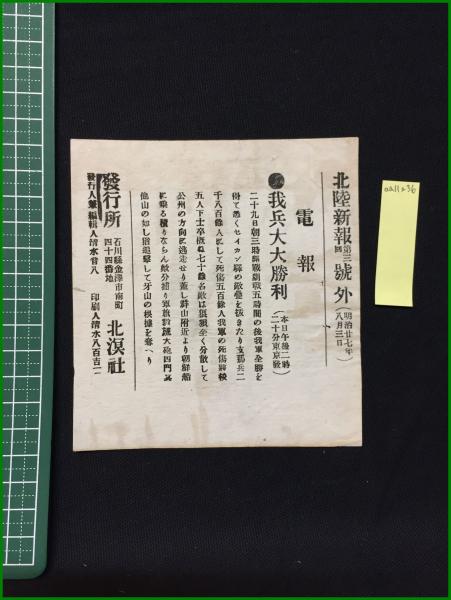 北陸新報第三號外
明治廿七年
八月三日
電報
我兵大大勝利
本日午後二時
二十分東京發
二十九日朝三時開戰劇戰五時間の後我軍全勝を
得て悉くセイカン縣の敵壘を拔きたり支那兵二
千八百餘人にして死傷五百餘人我軍の死傷將校
五人下士卒概ね七十餘名敵は狼狽全く分散して
公州の方向に逃走せり蓋し群山附近より朝鮮船
に乘る積りならん敵分捕り軍旗數流大砲四門其
他山の如し猶追擊して牙山の根據を奪へり
發行所
石川縣金澤市南町
四十四番地
北溟社
發行人兼編輯人清水
印刷人清水八百吉
aa11a36